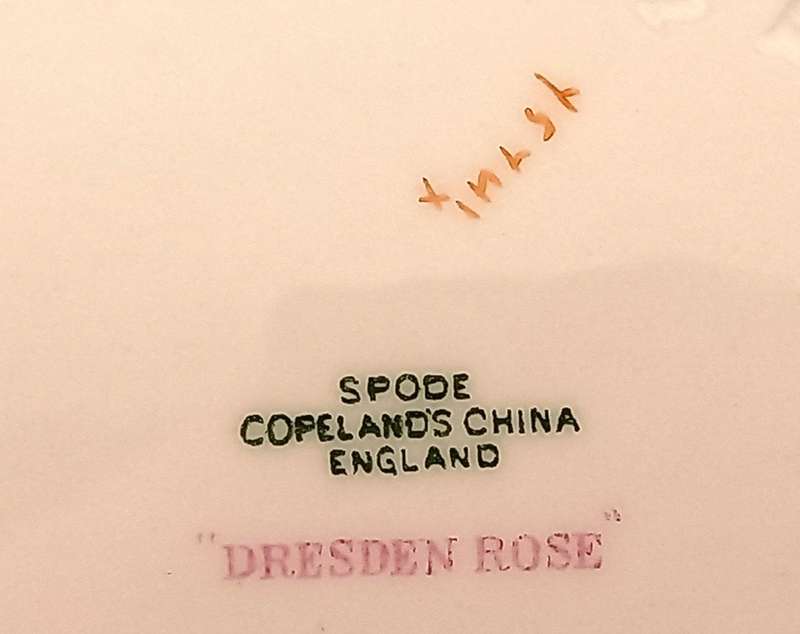 SPODE
COPELAND'S CHINA
ENGLAND
"DRESDEN ROSE"